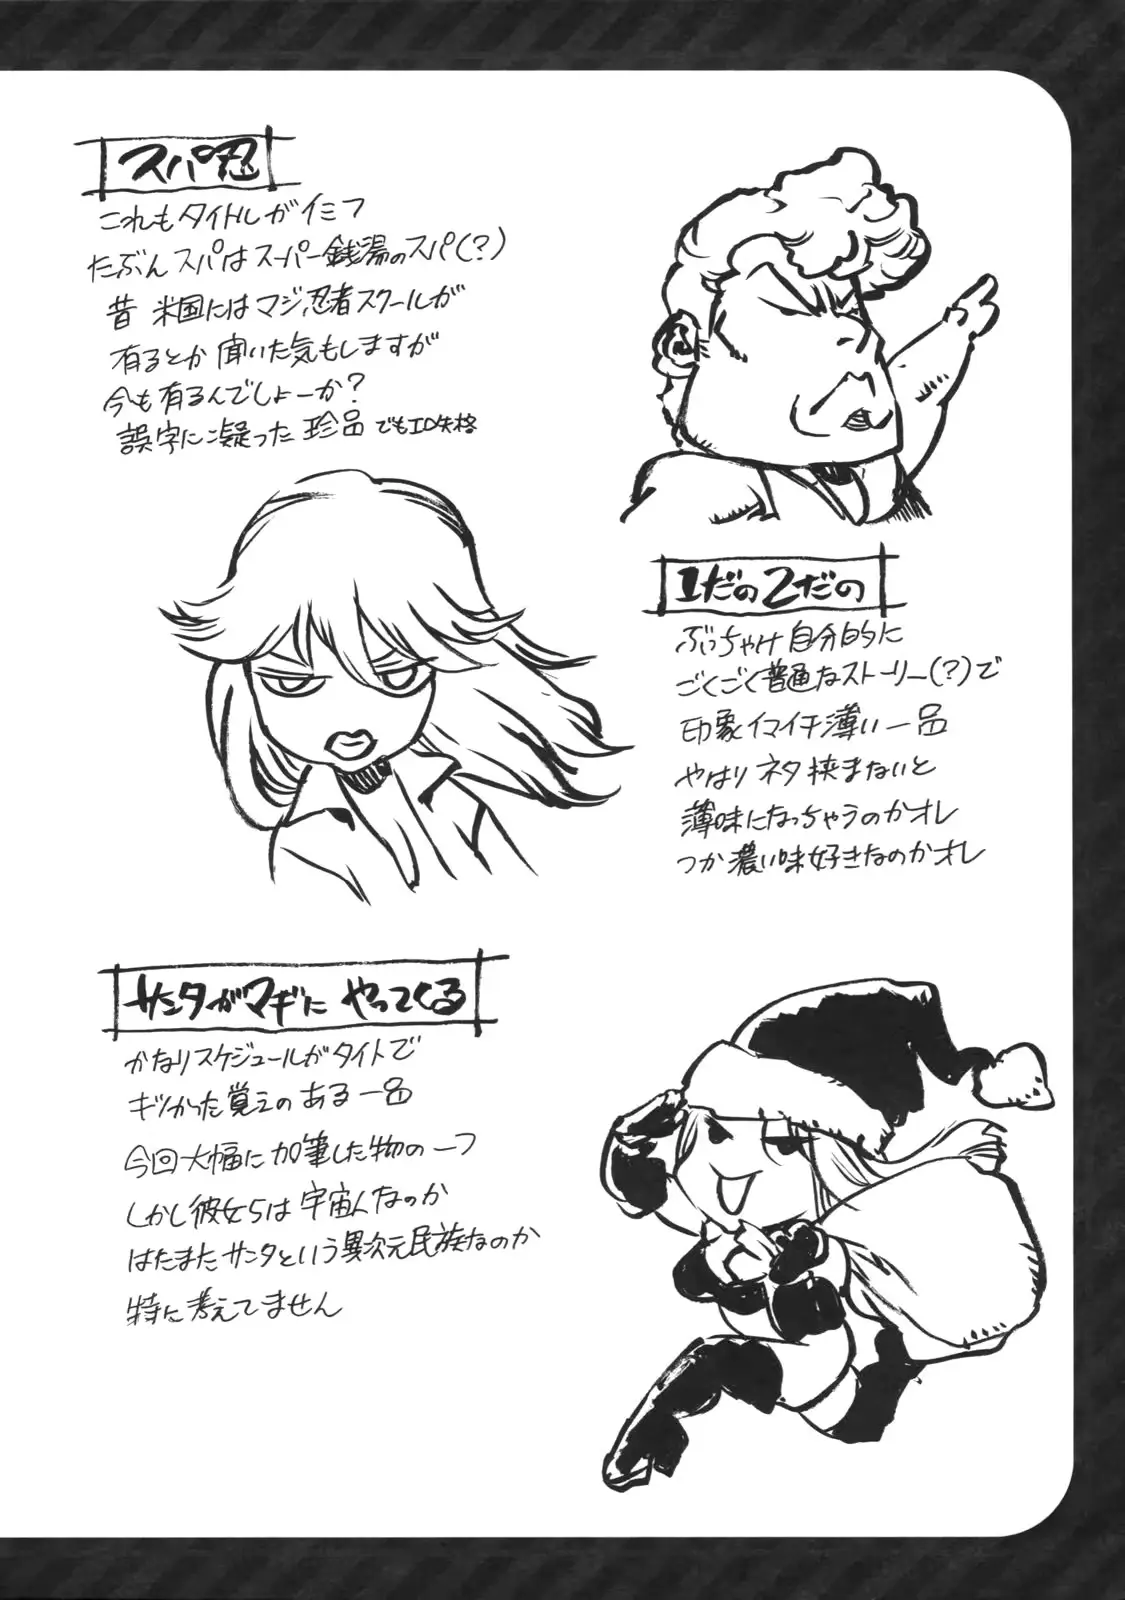 スパ忍
これもタイトルがイミフ
たぶん スパは スーパー銭湯のスパ(?)
昔 米国にはマジ忍者スクールが
有るとか 聞いた気もしますが
今も有るんでしょーか?
誤字に凝った 珍品 でもエロ失格
1だの2だの
ぶっちゃけ 自分的に
ごくごく普通なストーリー(?)で
印象イマイチ薄い一品
やはり ネタ挟まないと
薄味になっちゃうのかオレ
つか濃い味好きなのかオレ
サンタがマギに やってくる
かなりスケジュールがタイトで
キツかった覚えのある一品
今回大幅に加筆した物の一つ
しかし彼女らは 宇宙人なのか
はたまた サンタという異次元民族なのか
特に考えてません